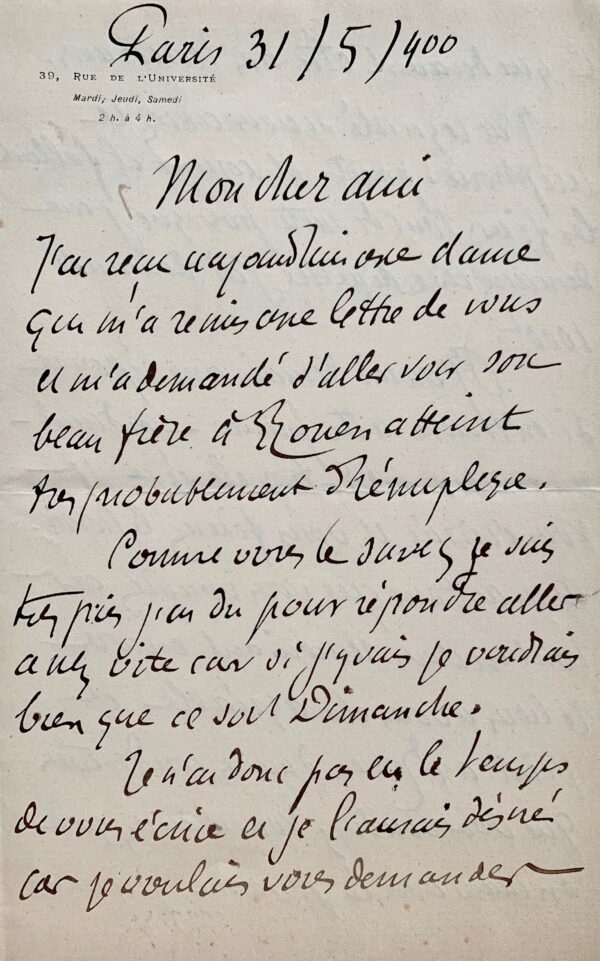 Paris 31/5/900
39, Rue de l'Université
Mardi, Jeudi, Samedi
2 h. à 4 h.
Mon cher ami
J'ai reçu aujourd'hui une dame
qui m'a remis une lettre de vous
et m'a demandé d'aller voir son
beau frère à Rouen atteint
très probablement d'hémiplégie.
Comme vous le savez je suis
très pris j'ai du pour répondre aller
assez vite car si j'y vais je voudrais
bien que ce soit Dimanche.
Je n'ai donc pas eu le temps
de vous écrire et je l'aurais désiré
car je voulais vous demander